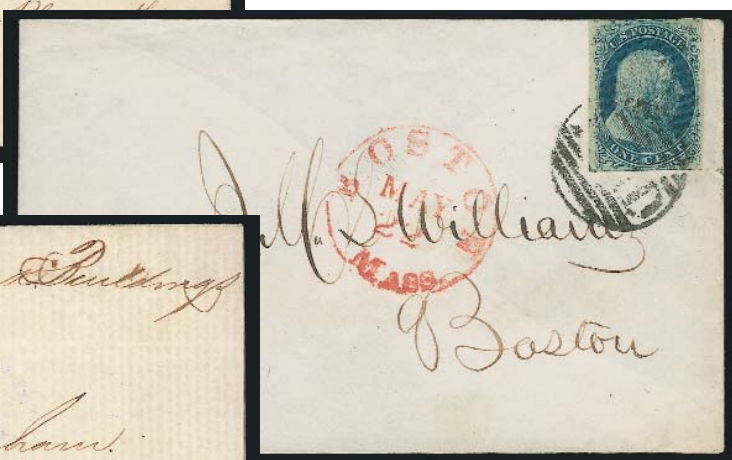 U.S. POSTAGE
ONE CENT
BOSTON
MAY
MASS.
J. M. S. Williams
Boston
Buildings
ham.